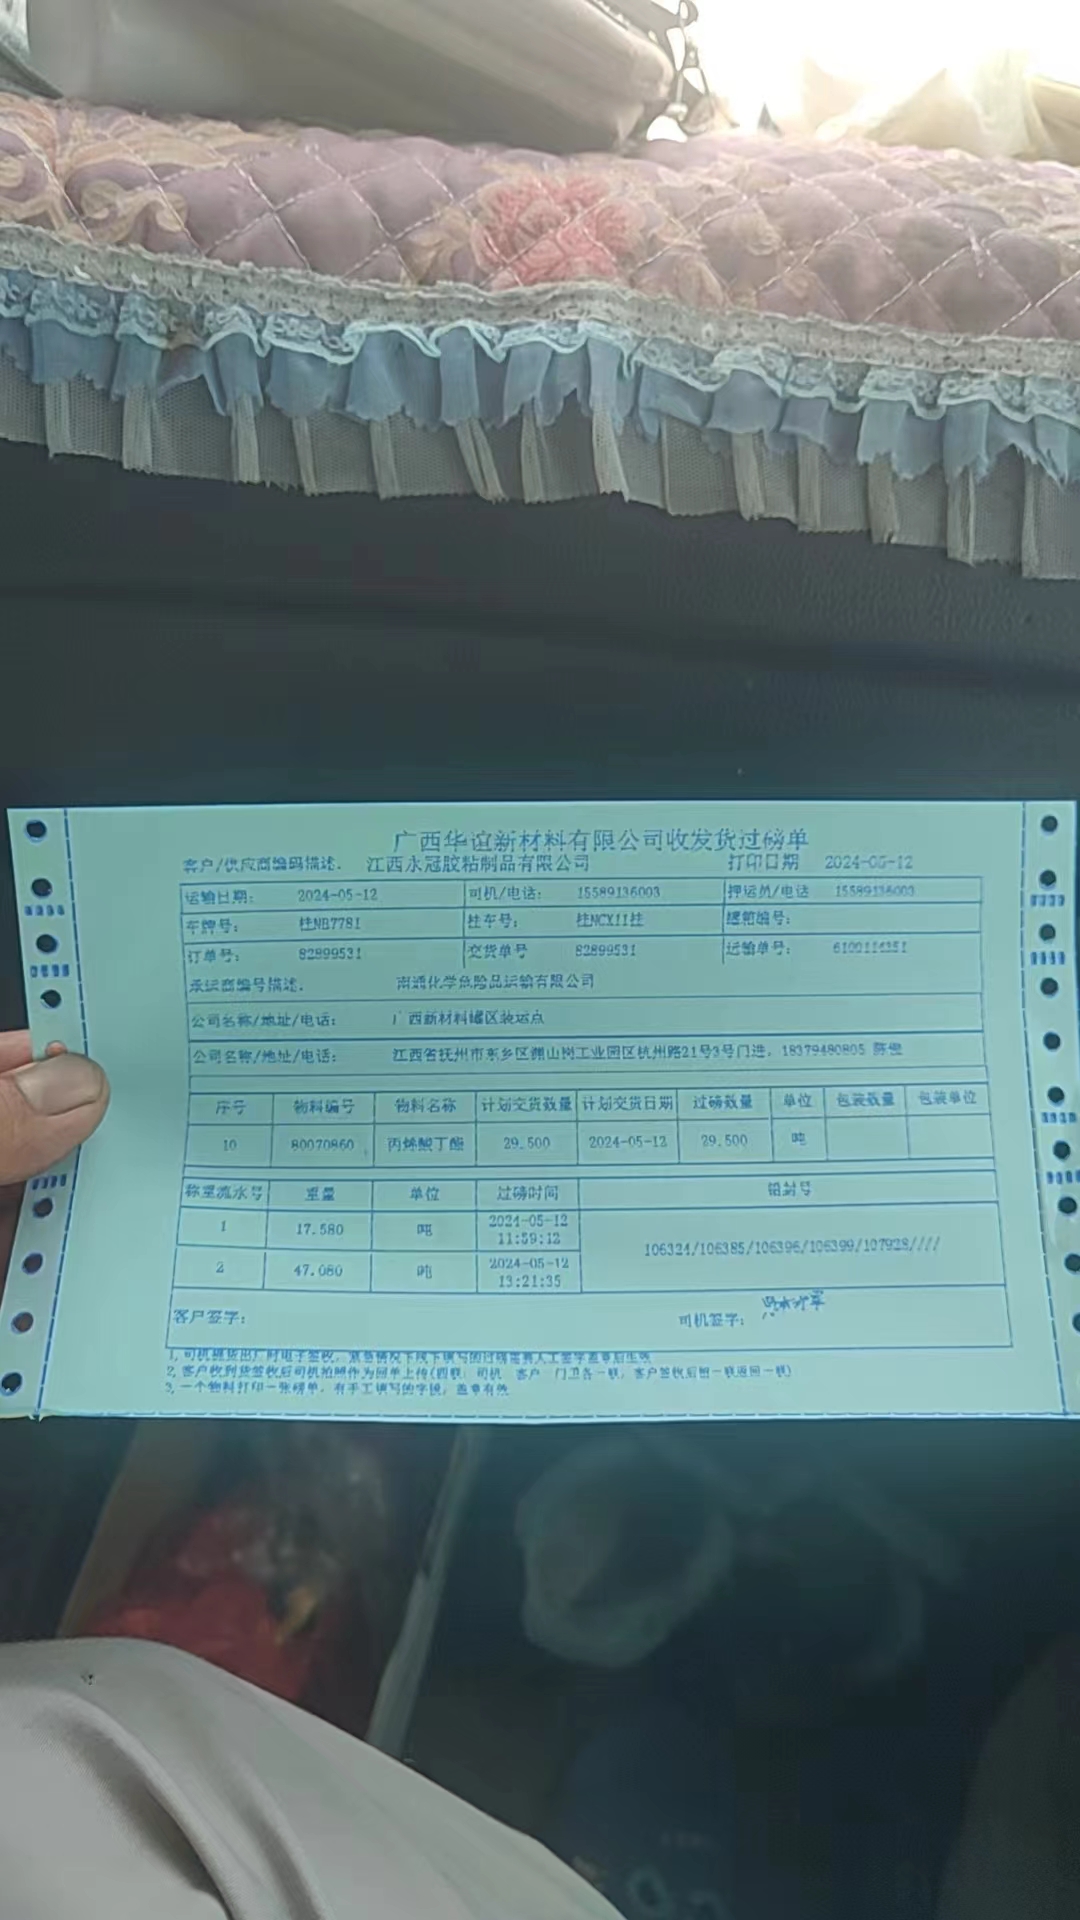 广西华谊新材料有限公司收发货过磅单
客户/供应商编码描述. 江西永冠胶粘制品有限公司 打印日期 2024-05-12
运输日期: 2024-05-12 司机/电话: 15589136003 押运员/电话 15589136003
车牌号: 桂NB7781 挂车号: 桂NCX11挂 编号:
订单号: 82899531 交货单号 82899531 运输单号:
承运商编号描述. 南通化学危险品运输有限公司
公司名称/地址/电话: 广西新材料罐区装运点
公司名称/地址/电话: 江西省抚州市东乡区渊山岗工业园区杭州路21号3号门进, 18379480805
序号 物料编号 物料名称 计划交货数量 计划交货日期 过磅数量 单位 包装数量 包装单位
10 80070860 丙烯酸丁酯 29.500 2024-05-12 29.500 吨
称重流水号 重量 单位 过磅时间 铅封号
1 17.580 吨 2024-05-12 11:59:12 106324/106385/106396/106399/107928////
2 47.080 吨 2024-05-12 13:21:35
客户签字: 司机签字:
1, 司机提货出厂时电子签收, 紧急情况下线下填写的过磅需要人工签字盖章后生效
2, 客户收到货签收后司机拍照作为回单上传(四联: 司机 客户 门卫各一联, 客户签收后留一联返回一联)
3, 一个物料打印一张磅单, 有手工填写的字样, 盖章有效